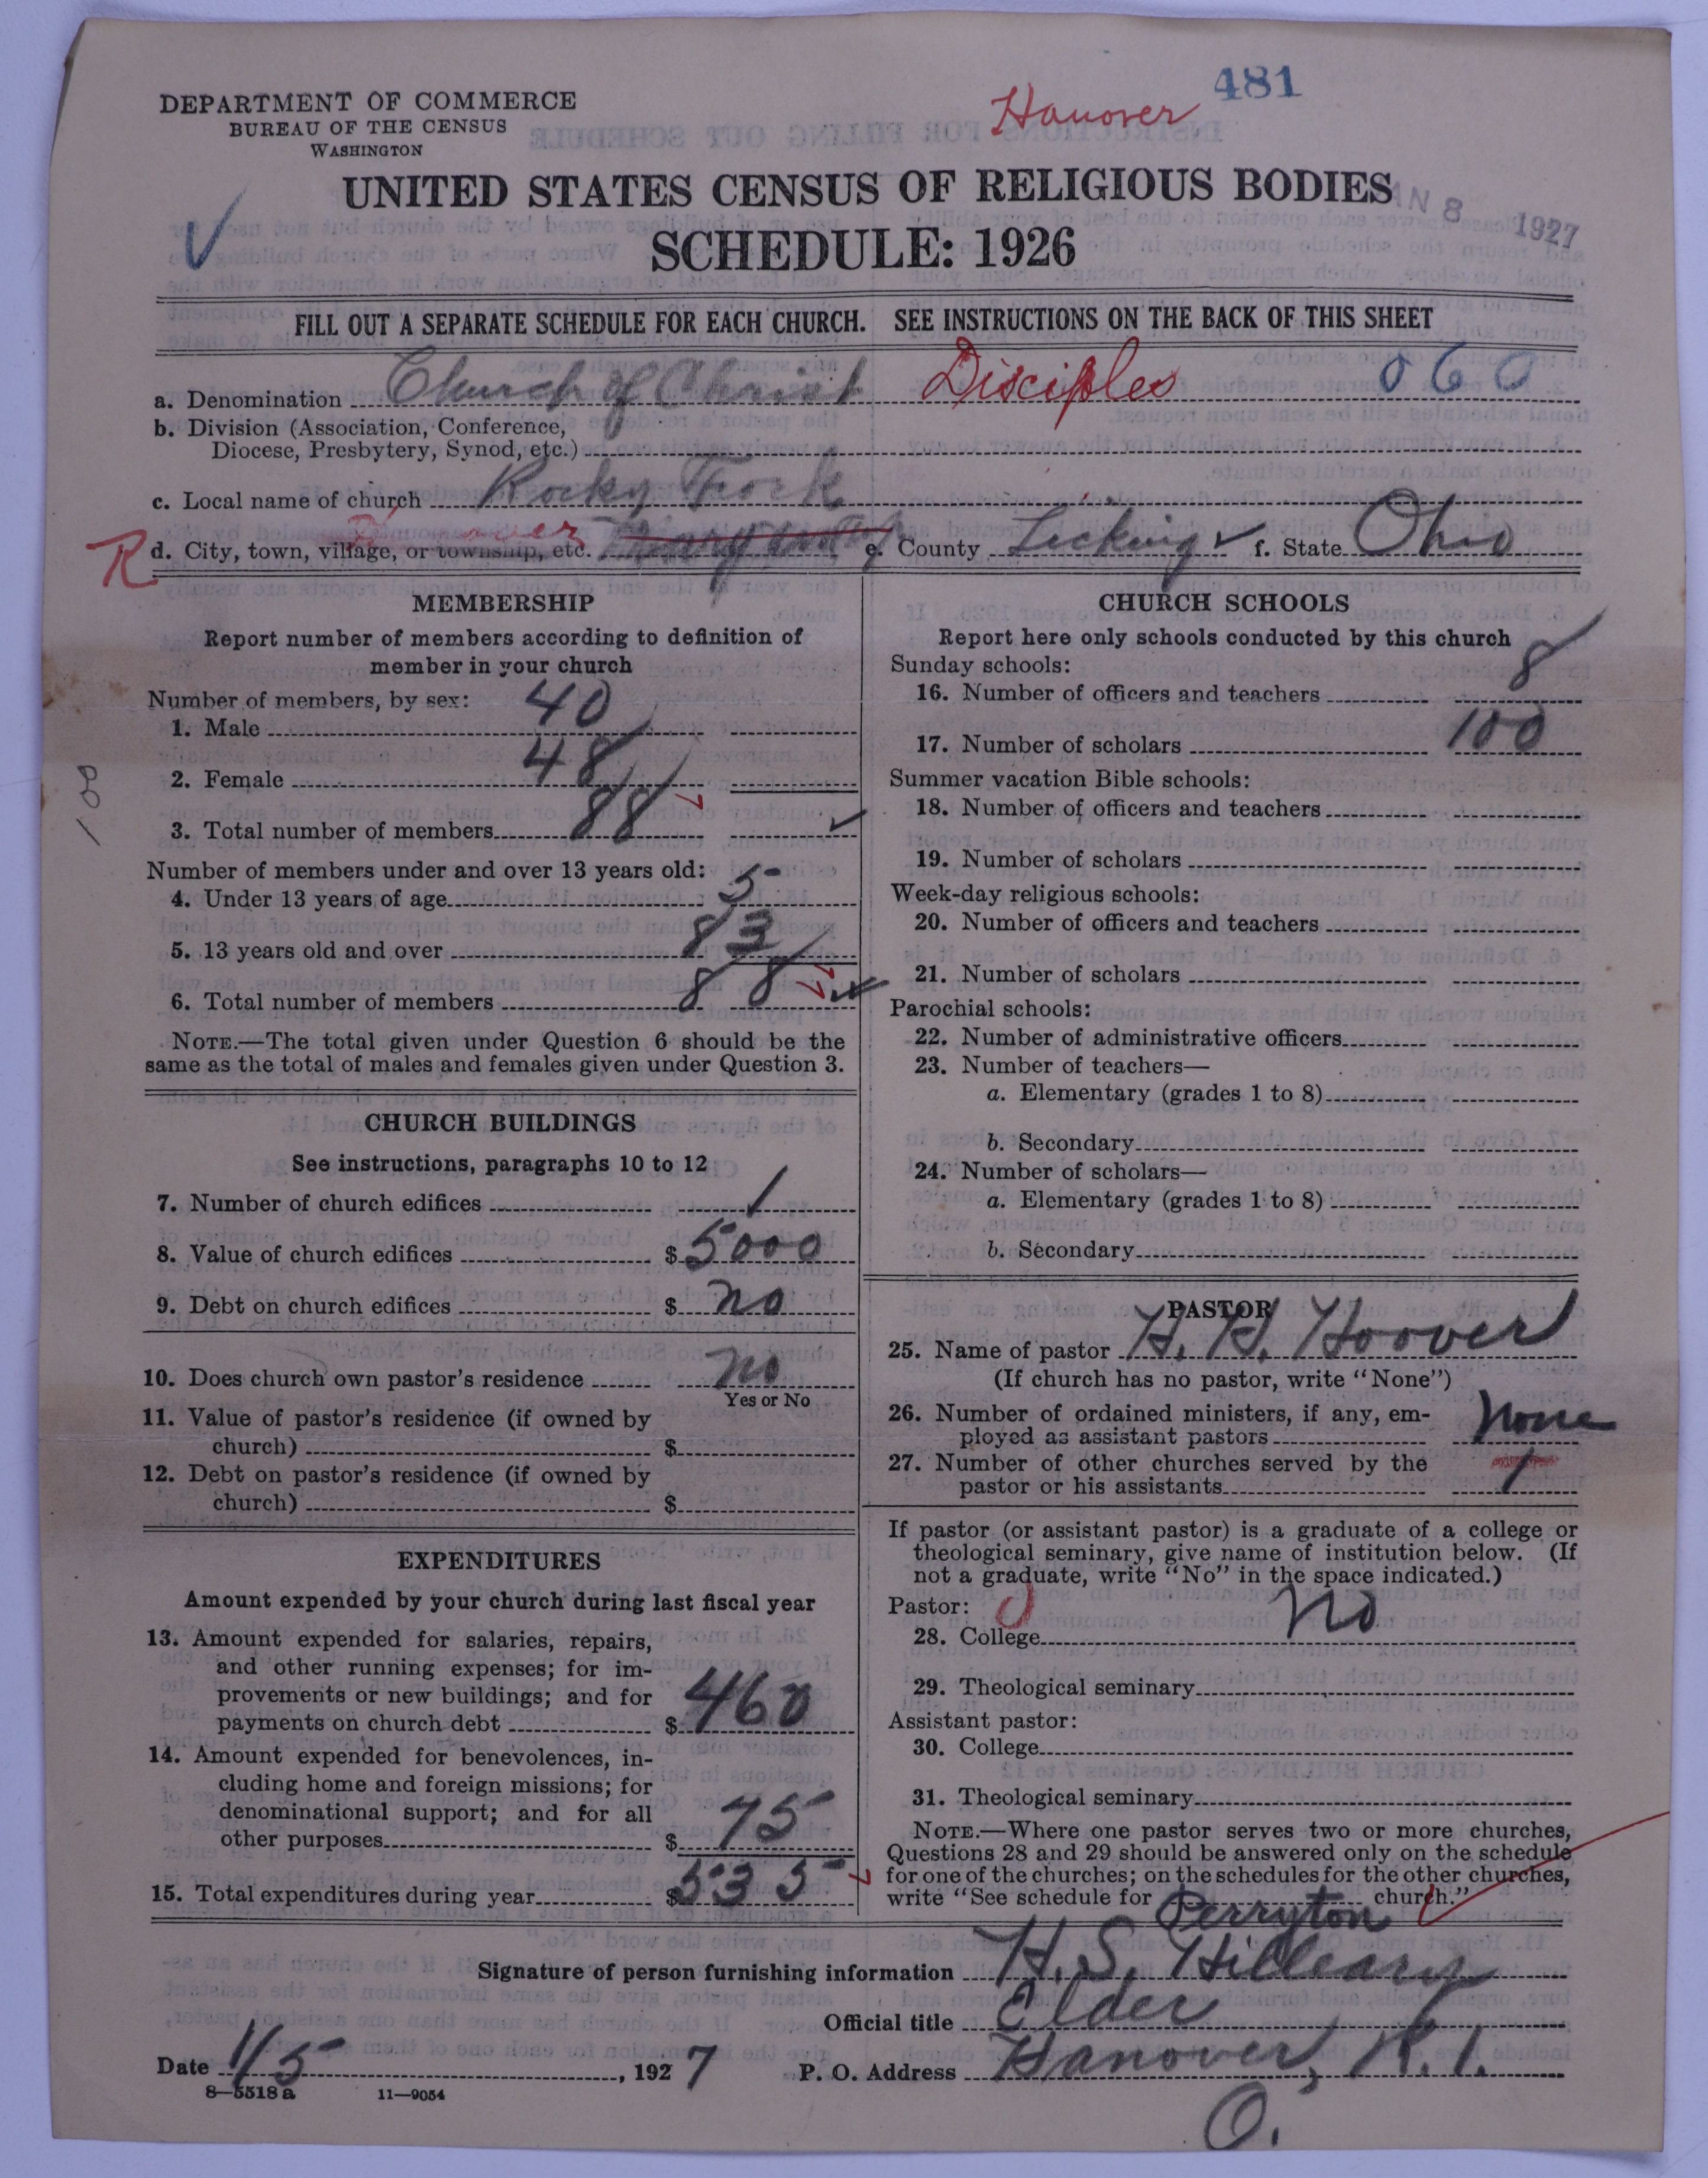 481
Hanover
DEPARTMENT OF COMMERCE
BUREAU OF THE CENSUS
WASHINGTON
UNITED STATES CENSUS OF RELIGIOUS BODIES
SCHEDULE: 1926
AN 8 1927
FILL OUT A SEPARATE SCHEDULE FOR EACH CHURCH. SEE INSTRUCTIONS ON THE BACK OF THIS SHEET
a. Denomination Church of Christ Disciples 060
b. Division (Association, Conference,
Diocese, Presbytery, Synod, etc.)
c. Local name of church Rocky Fork
R d. City, town, village, or township, etc. e. County Licking f. State Ohio
MEMBERSHIP
Report number of members according to definition of
member in your church
Number of members, by sex:
1. Male 40
2. Female 48
3. Total number of members 88
Number of members under and over 13 years old:
4. Under 13 years of age 5
5. 13 years old and over 83
6. Total number of members 88
NOTE.—The total given under Question 6 should be the
same as the total of males and females given under Question 3.
CHURCH BUILDINGS
See instructions, paragraphs 10 to 12
7. Number of church edifices 1
8. Value of church edifices $ 5000
9. Debt on church edifices $ no
10. Does church own pastor's residence no
Yes or No
11. Value of pastor's residence (if owned by
church) $
12. Debt on pastor's residence (if owned by
church) $
EXPENDITURES
Amount expended by your church during last fiscal year
13. Amount expended for salaries, repairs,
and other running expenses; for im-
provements or new buildings; and for
payments on church debt $ 460
14. Amount expended for benevolences, in-
cluding home and foreign missions; for
denominational support; and for all
other purposes $ 75
15. Total expenditures during year $ 535
CHURCH SCHOOLS
Report here only schools conducted by this church
Sunday schools:
16. Number of officers and teachers 8
17. Number of scholars 100
Summer vacation Bible schools:
18. Number of officers and teachers
19. Number of scholars
Week-day religious schools:
20. Number of officers and teachers
21. Number of scholars
Parochial schools:
22. Number of administrative officers
23. Number of teachers—
a. Elementary (grades 1 to 8)
b. Secondary
24. Number of scholars—
a. Elementary (grades 1 to 8)
b. Secondary
PASTOR
25. Name of pastor H. H. Hoover
(If church has no pastor, write "None")
26. Number of ordained ministers, if any, em-
ployed as assistant pastors None
27. Number of other churches served by the
pastor or his assistants 1
If pastor (or assistant pastor) is a graduate of a college or
theological seminary, give name of institution below. (If
not a graduate, write "No" in the space indicated.)
Pastor:
28. College No
29. Theological seminary
Assistant pastor:
30. College
31. Theological seminary
NOTE.—Where one pastor serves two or more churches,
Questions 28 and 29 should be answered only on the schedule
for one of the churches; on the schedules for the other churches,
write "See schedule for Perryton church."
Signature of person furnishing information H. S. Hilleary
Official title Elder
Date 1/5, 1927 P. O. Address Hanover, R. 1.
O.
8—5518 a 11—9054